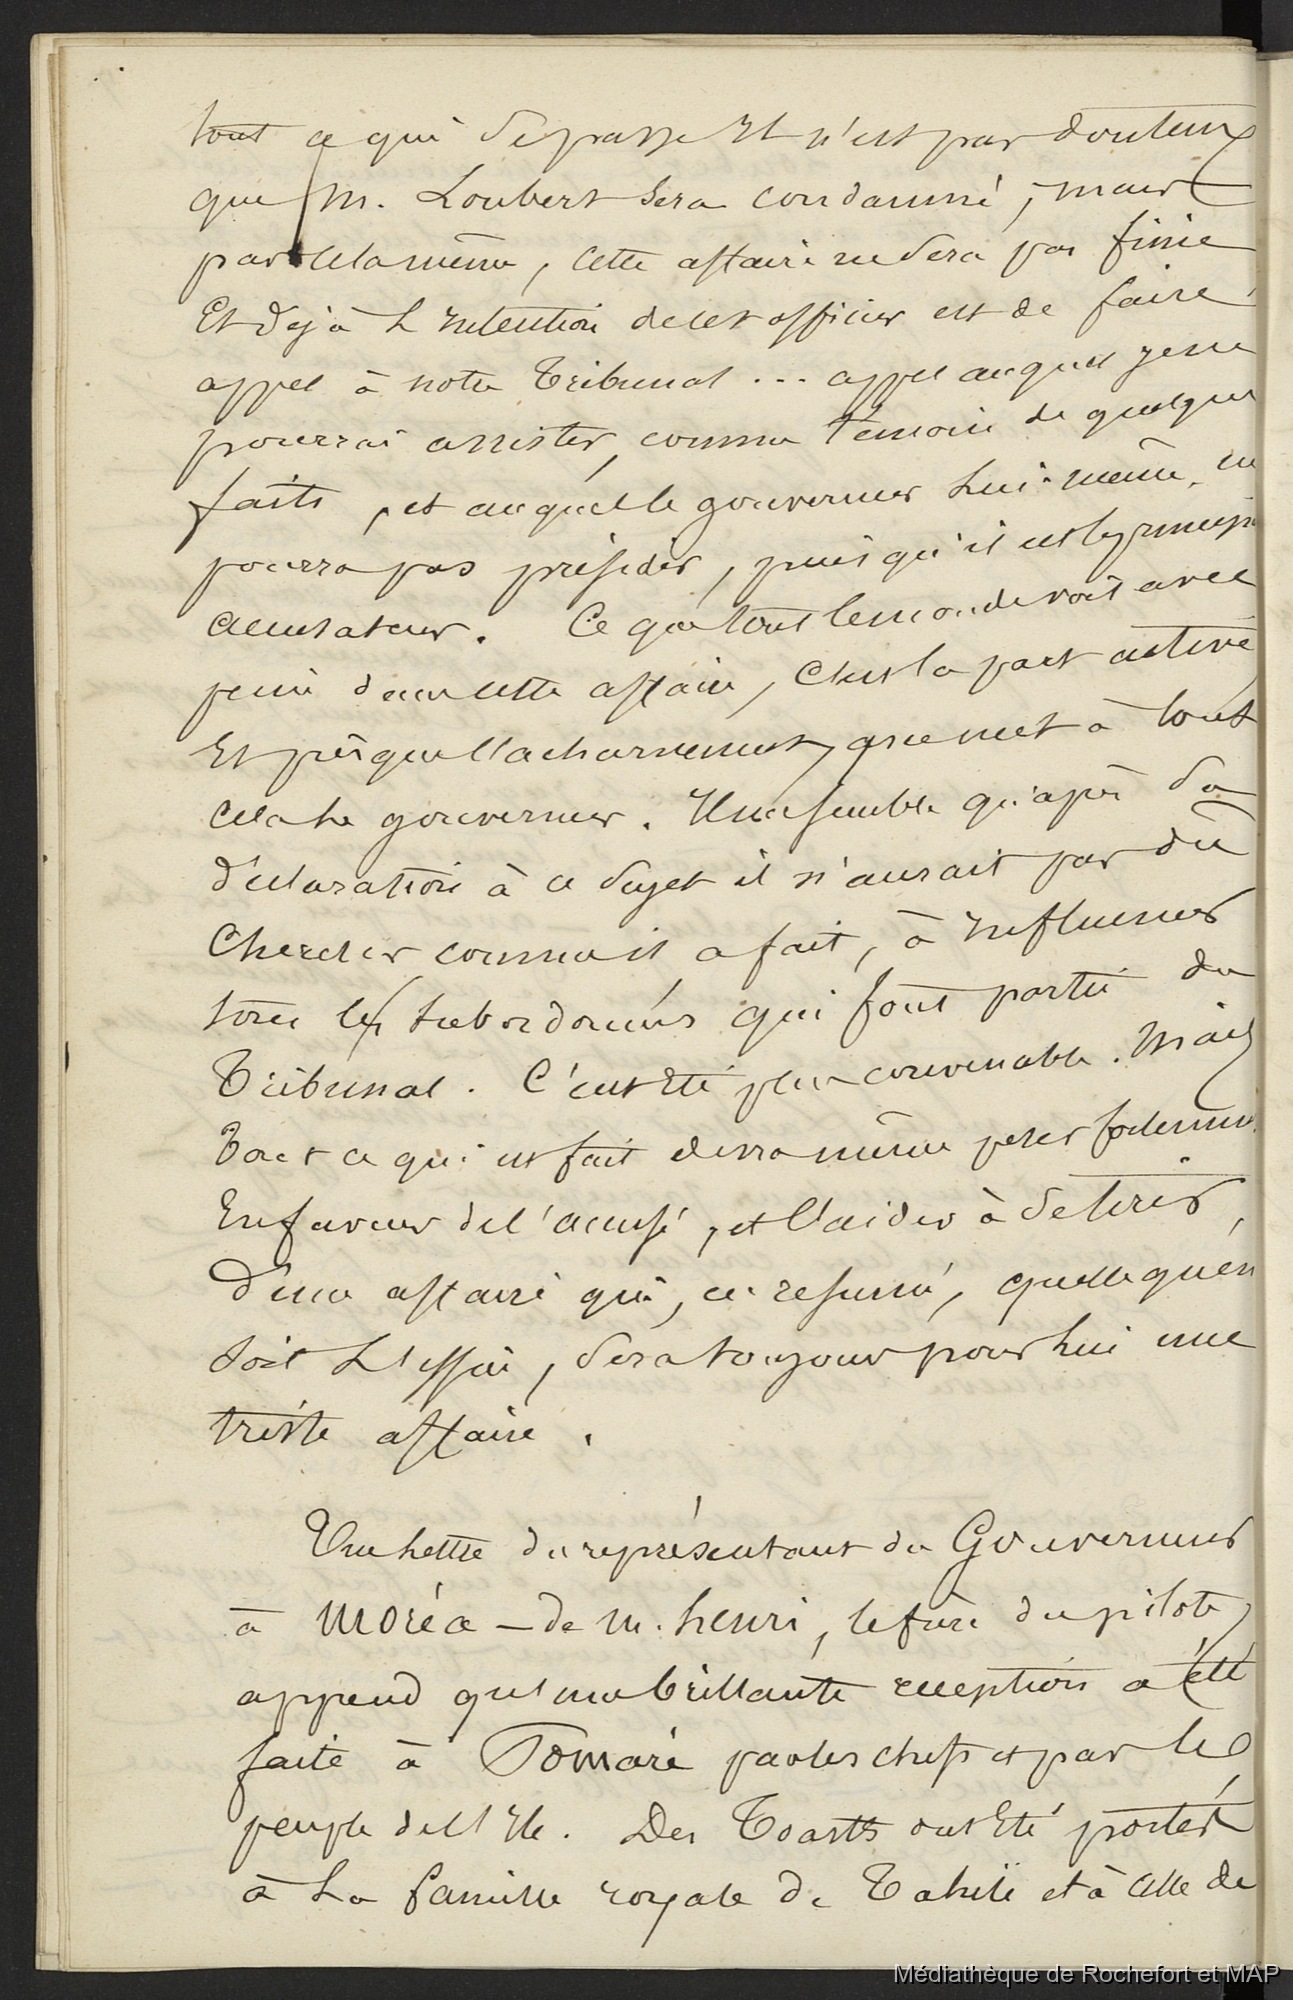 tout ce qui se passe Et n'est pas douteux
que M. Loubert sera condamné, mais
par cela même, cette affaire ne sera pas finie
Et déjà L'intention de cet officier est de faire
appel à notre Tribunal ... appel auquel je ne
pourrai assister, comme témoin de quelques
faits, et auquel le gouverneur lui-même, ne
pourra pas présider, puisqu'il est le principal
accusateur. Ce que tout le monde voit avec
peine dans cette affaire, C'est la part active
Et presque l'acharnement, que met à tout
cela Le gouverneur. Il me semble qu'après sa
déclaration à ce sujet il n'aurait pas dû
Chercher comme il a fait, à influencer
tous les subordonnés qui font partie du
Tribunal. C'eut été plus convenable. Mais
Tout ce qui est fait devra même peser
En faveur de l'accusé, et l'aider à se tirer
D'une affaire qui, en résumé, quelle qu'en
soit L'issue, sera toujours pour lui une
triste affaire.
Une lettre du représentant du Gouverneur
à Moréa - de M. henri, le frère du pilote,
apprend qu'une brillante réception a été
faite à Pomaré par les chefs et par le
peuple de l'Ile. Des Toasts ont été portés
à La famille royale de Tahiti et à celle de
Médiathèque de Rochefort et MAP